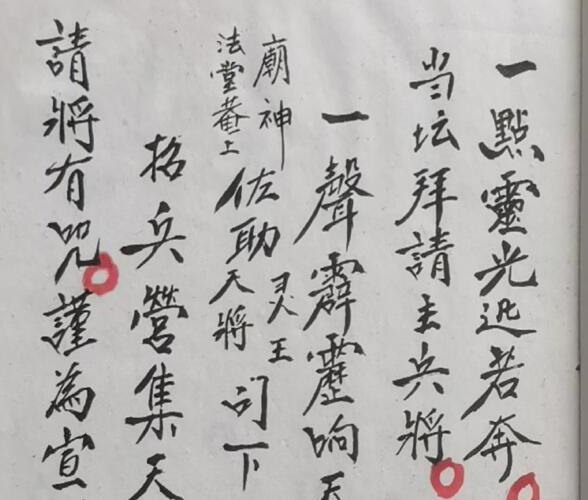 一點靈光迅若奔
当坛拜請主兵將
一聲霹靂响天
廟神
法堂菴上
佐助
灵王
天將
问下
招兵營集天
請將有咒謹為宣